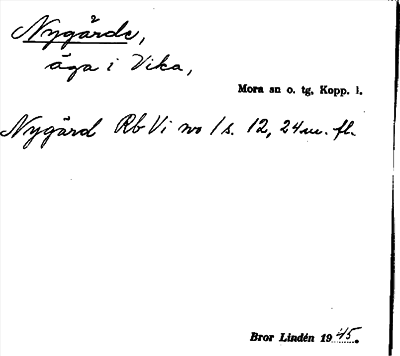 Nygårde,
äga i Vika,
Mora sn o. tg, Kopp. l.
Nygård Rb Vi no 1 s. 12, 24 m. fl.
Bror Lindén 1945.